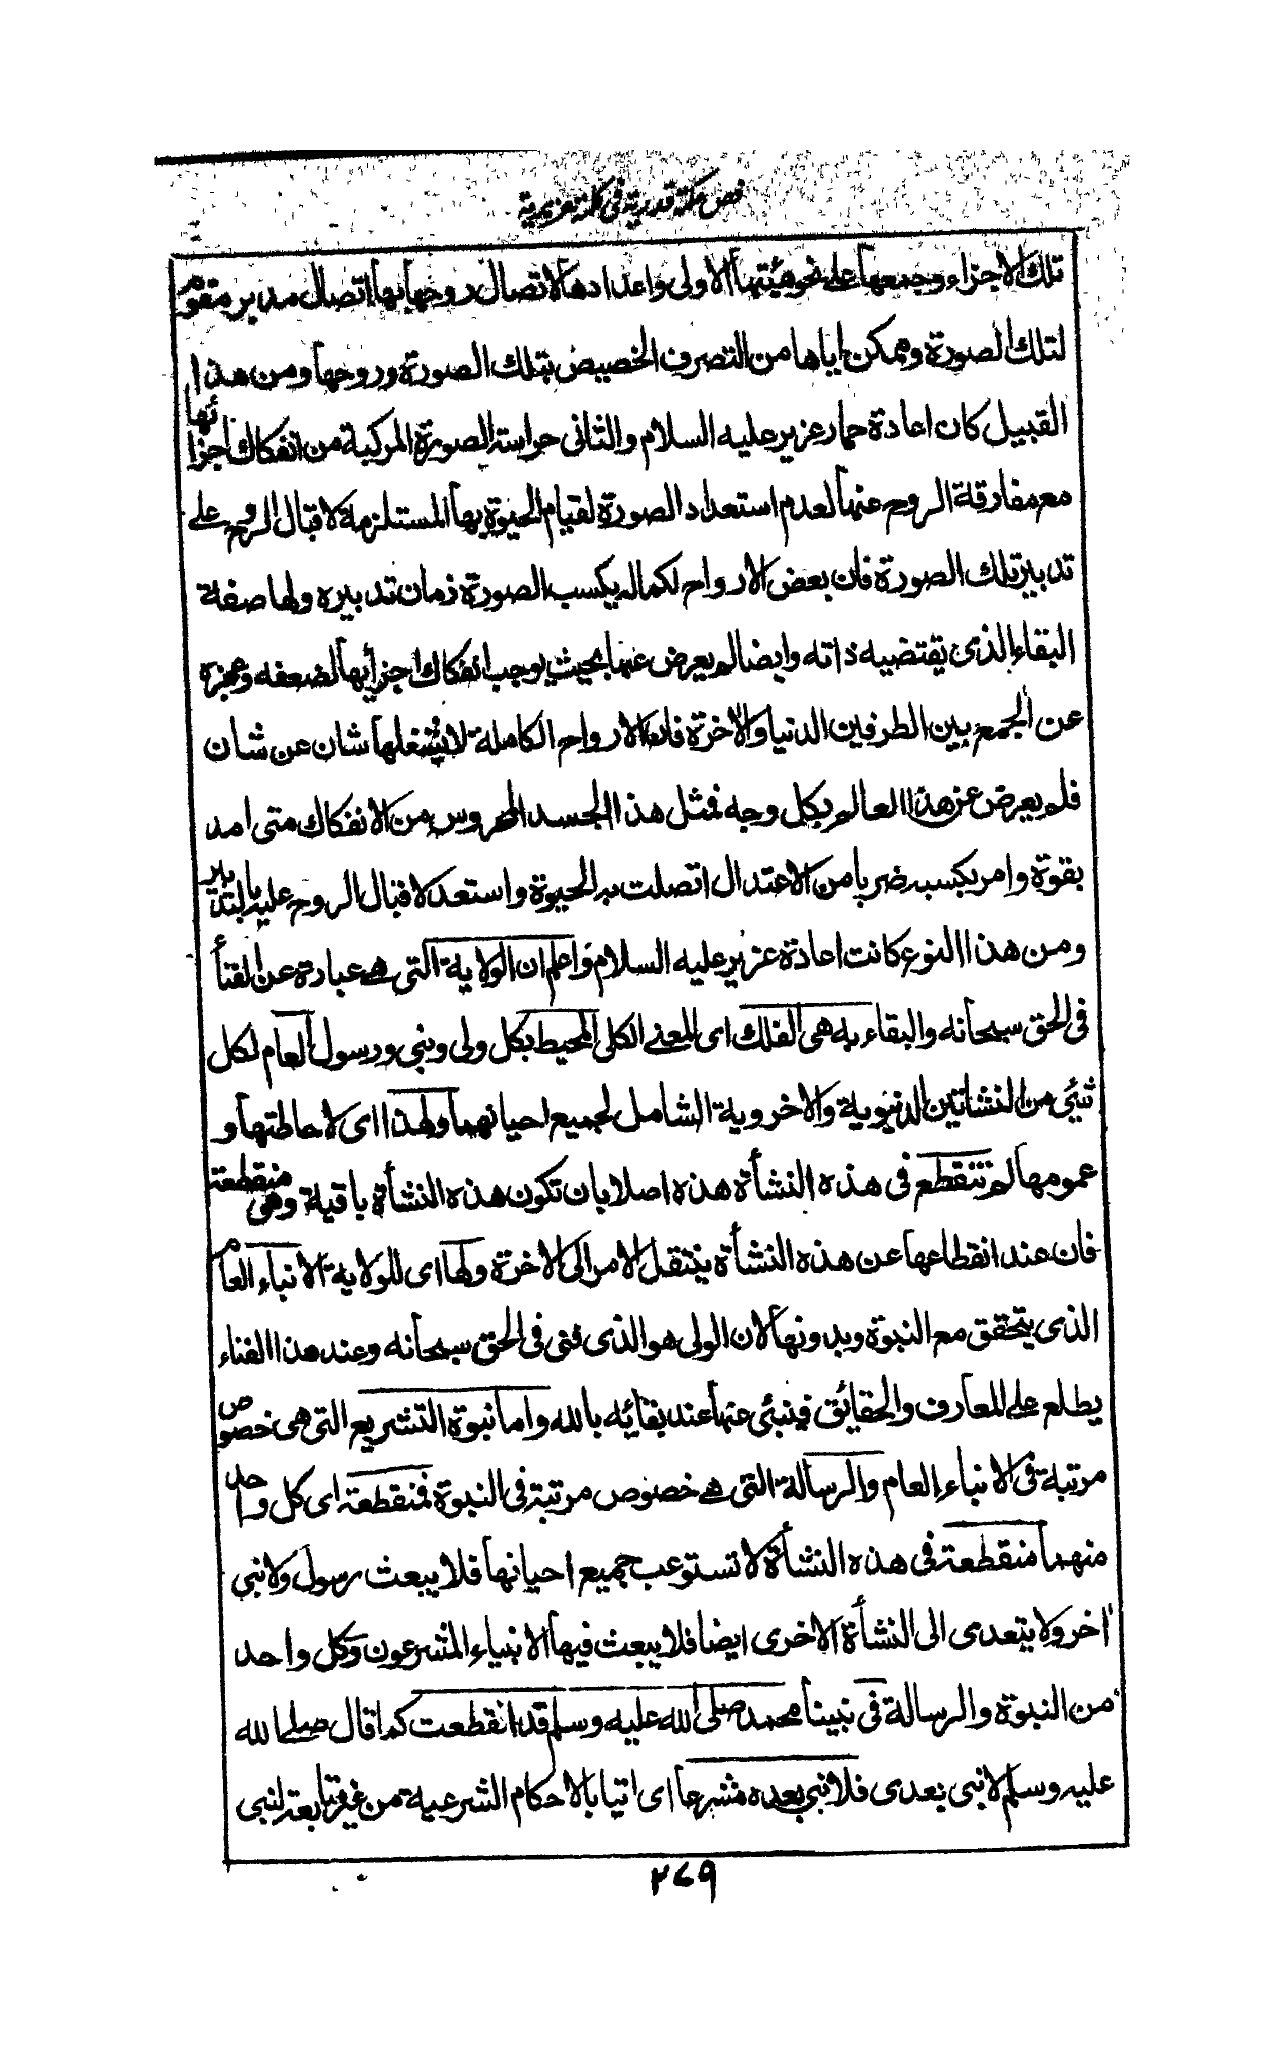 فص حكمة قدرية في كلمة عزيرية
تلك الاجزاء وجمعها على نحو هيئتها الاولى واعدادها لاتصال روحها بها اتصال مدبر مقوم
لتلك الصورة وممكن اياها من التصرف الخصيص بتلك الصورة وروحها ومن هذا
القبيل كان اعادة حمار عزير عليه السلام والثانى حراسة الصورة المركبة من انفكاك اجزائها
مع مفارقة الروح عنها لعدم استعداد الصورة لقيام الحيوة بها المستلزمة لاقبال الروح على
تدبير تلك الصورة فان بعض الارواح لكماله يكسب الصورة زمان تدبيره ولها صفة
البقاء الذى يقتضيه ذاته وايضا لم يعرض عنها بحيث يوجب انفكاك اجزائها لضعفه وعجزه
عن الجمع بين الطرفين الدنيا والاخرة فان الارواح الكاملة لا يشغلها شان عن شان
فلم يعرض عن هذا العالم بكل وجه فمثل هذا الجسد المحروس من الانفكاك متى امد
بقوة وامر يكسبه ضربا من الاعتدال اتصلت به الحيوة واستعد لاقبال الروح عليه بالتدبير
ومن هذا النوع كانت اعادة عزير عليه السلام واعلم ان الولاية التى هى عبارة عن الفناء
فى الحق سبحانه والبقاء به هى الفلك اى المعنى الكلى المحيط بكل ولى ونبى ورسول العام لكل
شئ من النشاتين الدنيوية والاخروية الشامل لجميع احيانهما ولهذا اى لاحاطتها و
عمومها لم تنقطع فى هذه النشأة هذه اصلا بان تكون هذه النشأة باقية وهى منقطعة
فان عند انقطاعها عن هذه النشأة ينتقل الامر الى الاخرة ولها اى للولاية الانباء العام
الذى يتحقق مع النبوة وبدونها لان الولى هو الذى فنى فى الحق سبحانه وعند هذا الفناء
يطلع على المعارف والحقائق فينبئ عنها عند بقائه بالله واما نبوة التشريع التى هى خصوص
مرتبة فى الانباء العام والرسالة التى هى خصوص مرتبة فى النبوة فمنقطعة اى كل واحد
منهما منقطعة فى هذه النشأة لا تستوعب جميع احيانها فلا يبعث رسول ولا نبى
اخر ولا يتعدى الى النشأة الاخرى ايضا فلا يبعث فيها الانبياء المشرعون وكل واحد
من النبوة والرسالة فى نبينا محمد صلى الله عليه وسلم قد انقطعت كما قال صلى الله
عليه وسلم لا نبى بعدى فلا نبى بعده مشرعا اى اتيا بالاحكام الشرعية من غير متابعة لنبى
٢٦٩